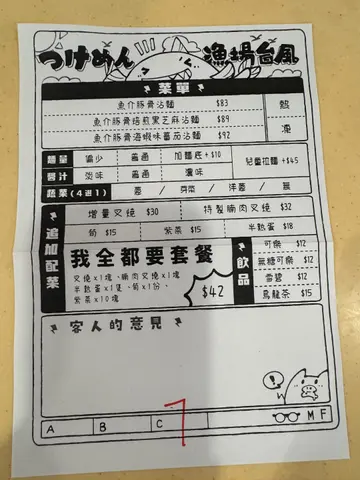 つけめん 漁場台風
菜單
魚介豚骨沾麵 $83
魚介豚骨焙煎黑芝麻沾麵 $89
魚介豚骨海蝦味番茄沾麵 $92
熱
凍
麵量 偏少 普通 加麵底+$10
醬汁 淡味 普通 濃味
兒童拉麵+$45
蔬菜(4選1) 蔥 / 芽菜 / 洋蔥 / 無
追加配菜
增量叉燒 $30 特製腩肉叉燒 $32
筍 $15 紫菜 $15 半熟蛋 $18
我全都要套餐
叉燒x1塊、腩肉叉燒x1塊
半熟蛋x1隻、筍x1份、
紫菜x10塊
$42
飲品
可樂 $12
無糖可樂 $12
雪碧 $12
烏龍茶 $15
客人的意見
A B C M F
7